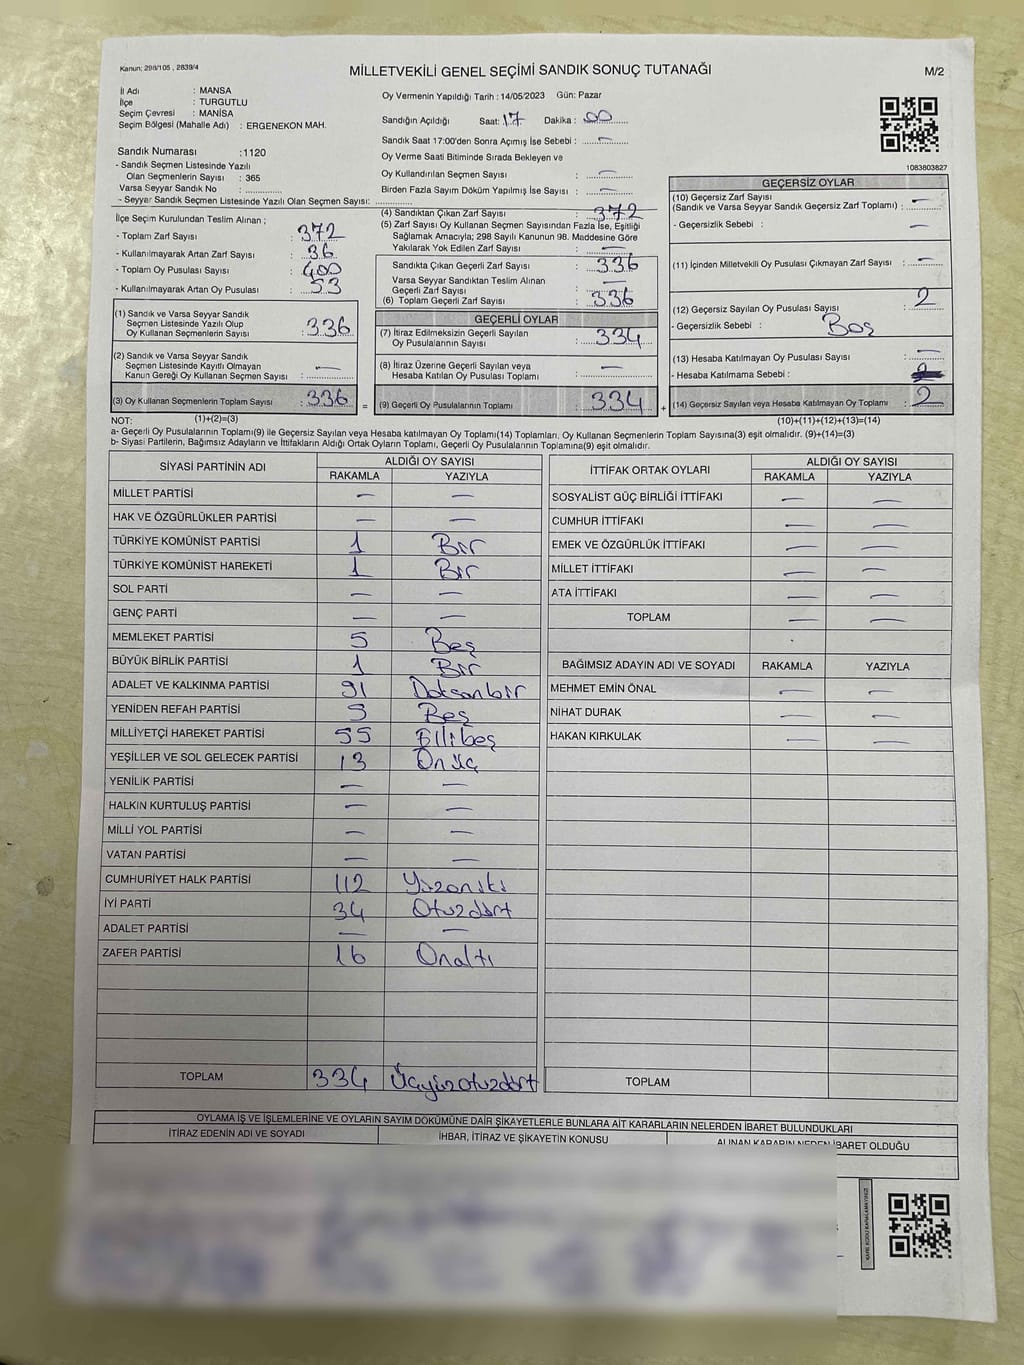 Kanun: 298/105 , 2839/4
MİLLETVEKİLİ GENEL SEÇİMİ SANDIK SONUÇ TUTANAĞI
M/2
İl Adı : MANİSA
İlçe : TURGUTLU
Seçim Çevresi : MANİSA
Seçim Bölgesi (Mahalle Adı) : ERGENEKON MAH.
Sandık Numarası :1120
- Sandık Seçmen Listesinde Yazılı
Olan Seçmenlerin Sayısı : 365
Varsa Seyyar Sandık No : ..............
- Seyyar Sandık Seçmen Listesinde Yazılı Olan Seçmen Sayısı: ..............
Oy Vermenin Yapıldığı Tarih : 14/05/2023 Gün: Pazar
Sandığın Açıldığı Saat: 17 Dakika : 00
Sandık Saat 17:00'den Sonra Açımış İse Sebebi : —
Oy Verme Saati Bitiminde Sırada Bekleyen ve
Oy Kullandırılan Seçmen Sayısı : —
Birden Fazla Sayım Döküm Yapılmış İse Sayısı : —
1083803827
İlçe Seçim Kurulundan Teslim Alınan ;
- Toplam Zarf Sayısı : 372
- Kullanılmayarak Artan Zarf Sayısı : 36
- Toplam Oy Pusulası Sayısı : 400
- Kullanılmayarak Artan Oy Pusulası : 53
(1) Sandık ve Varsa Seyyar Sandık
Seçmen Listesinde Yazılı Olup
Oy Kullanan Seçmenlerin Sayısı : 336
(2) Sandık ve Varsa Seyyar Sandık
Seçmen Listesinde Kayıtlı Olmayan
Kanun Gereği Oy Kullanan Seçmen Sayısı : —
(3) Oy Kullanan Seçmenlerin Toplam Sayısı : 336
(4) Sandıktan Çıkan Zarf Sayısı : 372
(5) Zarf Sayısı Oy Kullanan Seçmen Sayısından Fazla İse, Eşitliği
Sağlamak Amacıyla; 298 Sayılı Kanunun 98. Maddesine Göre
Yakılarak Yok Edilen Zarf Sayısı : —
Sandıkta Çıkan Geçerli Zarf Sayısı : 336
Varsa Seyyar Sandıktan Teslim Alınan
Geçerli Zarf Sayısı : —
(6) Toplam Geçerli Zarf Sayısı : 336
GEÇERLİ OYLAR
(7) İtiraz Edilmeksizin Geçerli Sayılan
Oy Pusulalarının Sayısı : 334
(8) İtiraz Üzerine Geçerli Sayılan veya
Hesaba Katılan Oy Pusulası Toplamı : —
= (9) Geçerli Oy Pusulalarının Toplamı : 334
GEÇERSİZ OYLAR
(10) Geçersiz Zarf Sayısı
(Sandık ve Varsa Seyyar Sandık Geçersiz Zarf Toplamı) : —
- Geçersizlik Sebebi : —
(11) İçinden Milletvekili Oy Pusulası Çıkmayan Zarf Sayısı : —
(12) Geçersiz Sayılan Oy Pusulası Sayısı : 2
- Geçersizlik Sebebi : Boş
(13) Hesaba Katılmayan Oy Pusulası Sayısı : —
- Hesaba Katılmama Sebebi :
+ (14) Geçersiz Sayılan veya Hesaba Katılmayan Oy Toplamı : 2
NOT: (1)+(2)=(3)
(10)+(11)+(12)+(13)=(14)
a- Geçerli Oy Pusulalarının Toplamı(9) ile Geçersiz Sayılan veya Hesaba katılmayan Oy Toplamı(14) Toplamları, Oy Kullanan Seçmenlerin Toplam Sayısına(3) eşit olmalıdır. (9)+(14)=(3)
b- Siyasi Partilerin, Bağımsız Adayların ve İttifakların Aldığı Ortak Oyların Toplamı, Geçerli Oy Pusulalarının Toplamına(9) eşit olmalıdır.
SİYASİ PARTİNİN ADI ALDIĞI OY SAYISI
RAKAMLA YAZIYLA
MİLLET PARTİSİ — —
HAK VE ÖZGÜRLÜKLER PARTİSİ — —
TÜRKİYE KOMÜNİST PARTİSİ 1 Bir
TÜRKİYE KOMÜNİST HAREKETİ 1 Bir
SOL PARTİ — —
GENÇ PARTİ — —
MEMLEKET PARTİSİ 5 Beş
BÜYÜK BİRLİK PARTİSİ 1 Bir
ADALET VE KALKINMA PARTİSİ 91 Doksanbir
YENİDEN REFAH PARTİSİ 5 Beş
MİLLİYETÇİ HAREKET PARTİSİ 55 Ellibeş
YEŞİLLER VE SOL GELECEK PARTİSİ 13 Onüç
YENİLİK PARTİSİ — —
HALKIN KURTULUŞ PARTİSİ — —
MİLLİ YOL PARTİSİ — —
VATAN PARTİSİ — —
CUMHURİYET HALK PARTİSİ 112 Yüzoniki
İYİ PARTİ 34 Otuzdört
ADALET PARTİSİ — —
ZAFER PARTİSİ 16 Onaltı
TOPLAM 334 Üçyüzotuzdört
İTTİFAK ORTAK OYLARI ALDIĞI OY SAYISI
RAKAMLA YAZIYLA
SOSYALİST GÜÇ BİRLİĞİ İTTİFAKI — —
CUMHUR İTTİFAKI — —
EMEK VE ÖZGÜRLÜK İTTİFAKI — —
MİLLET İTTİFAKI — —
ATA İTTİFAKI — —
TOPLAM — —
BAĞIMSIZ ADAYIN ADI VE SOYADI RAKAMLA YAZIYLA
MEHMET EMİN ÖNAL — —
NİHAT DURAK — —
HAKAN KIRKULAK — —
TOPLAM
OYLAMA İŞ VE İŞLEMLERİNE VE OYLARIN SAYIM DÖKÜMÜNE DAİR ŞİKAYETLERLE BUNLARA AİT KARARLARIN NELERDEN İBARET BULUNDUKLARI
İTİRAZ EDENİN ADI VE SOYADI
İHBAR, İTİRAZ VE ŞİKAYETİN KONUSU
ALINAN KARARIN NEDEN İBARET OLDUĞU